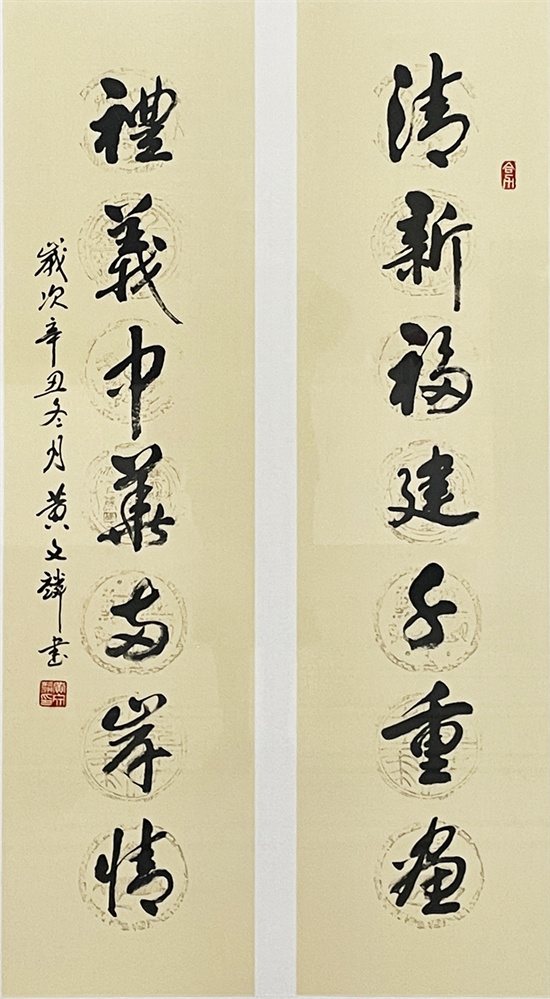 清新福建千重畫
禮義中華兩岸情
歲次辛丑冬月黄文麟書